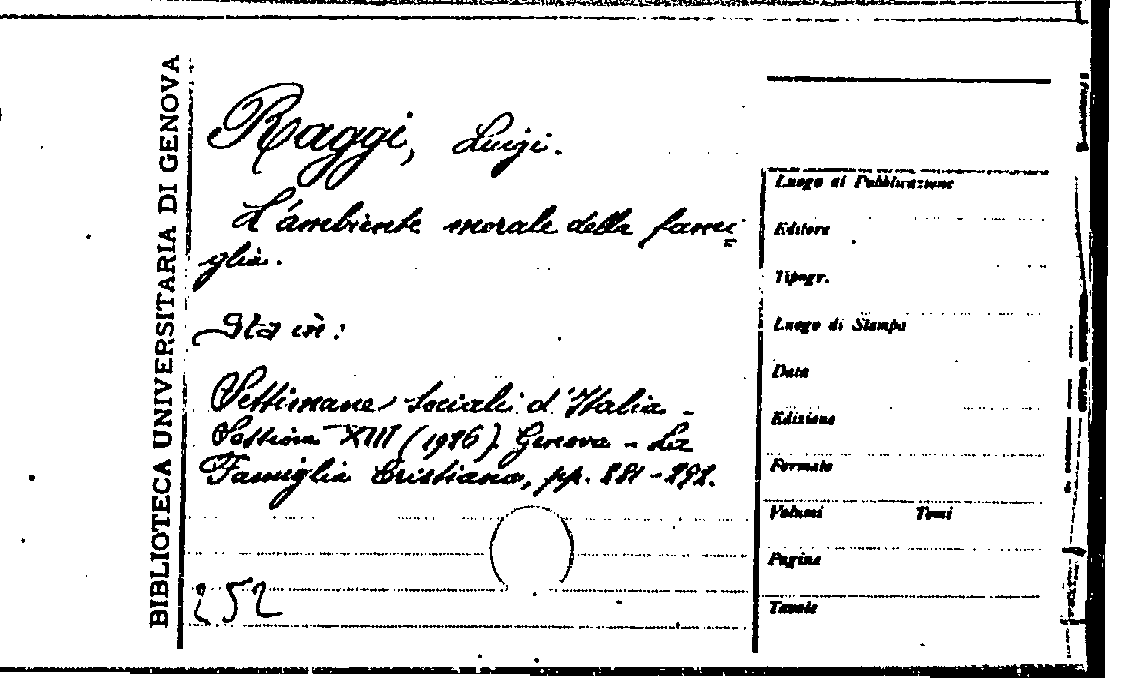 BIBLIOTECA UNIVERSITARIA DI GENOVA
Raggi, Luigi.
L'ambiente morale della fami=
glia.
Sta in:
Settimane Sociali d'Italia -
Sessione XIII (1926). Genova - La
Famiglia Cristiana, pp. 281-292.
252
Luogo di Pubblicazione
Editore
Tipogr.
Luogo di Stampa
Data
Edizione
Formato
Volumi Tomi
Pagine
Tavole